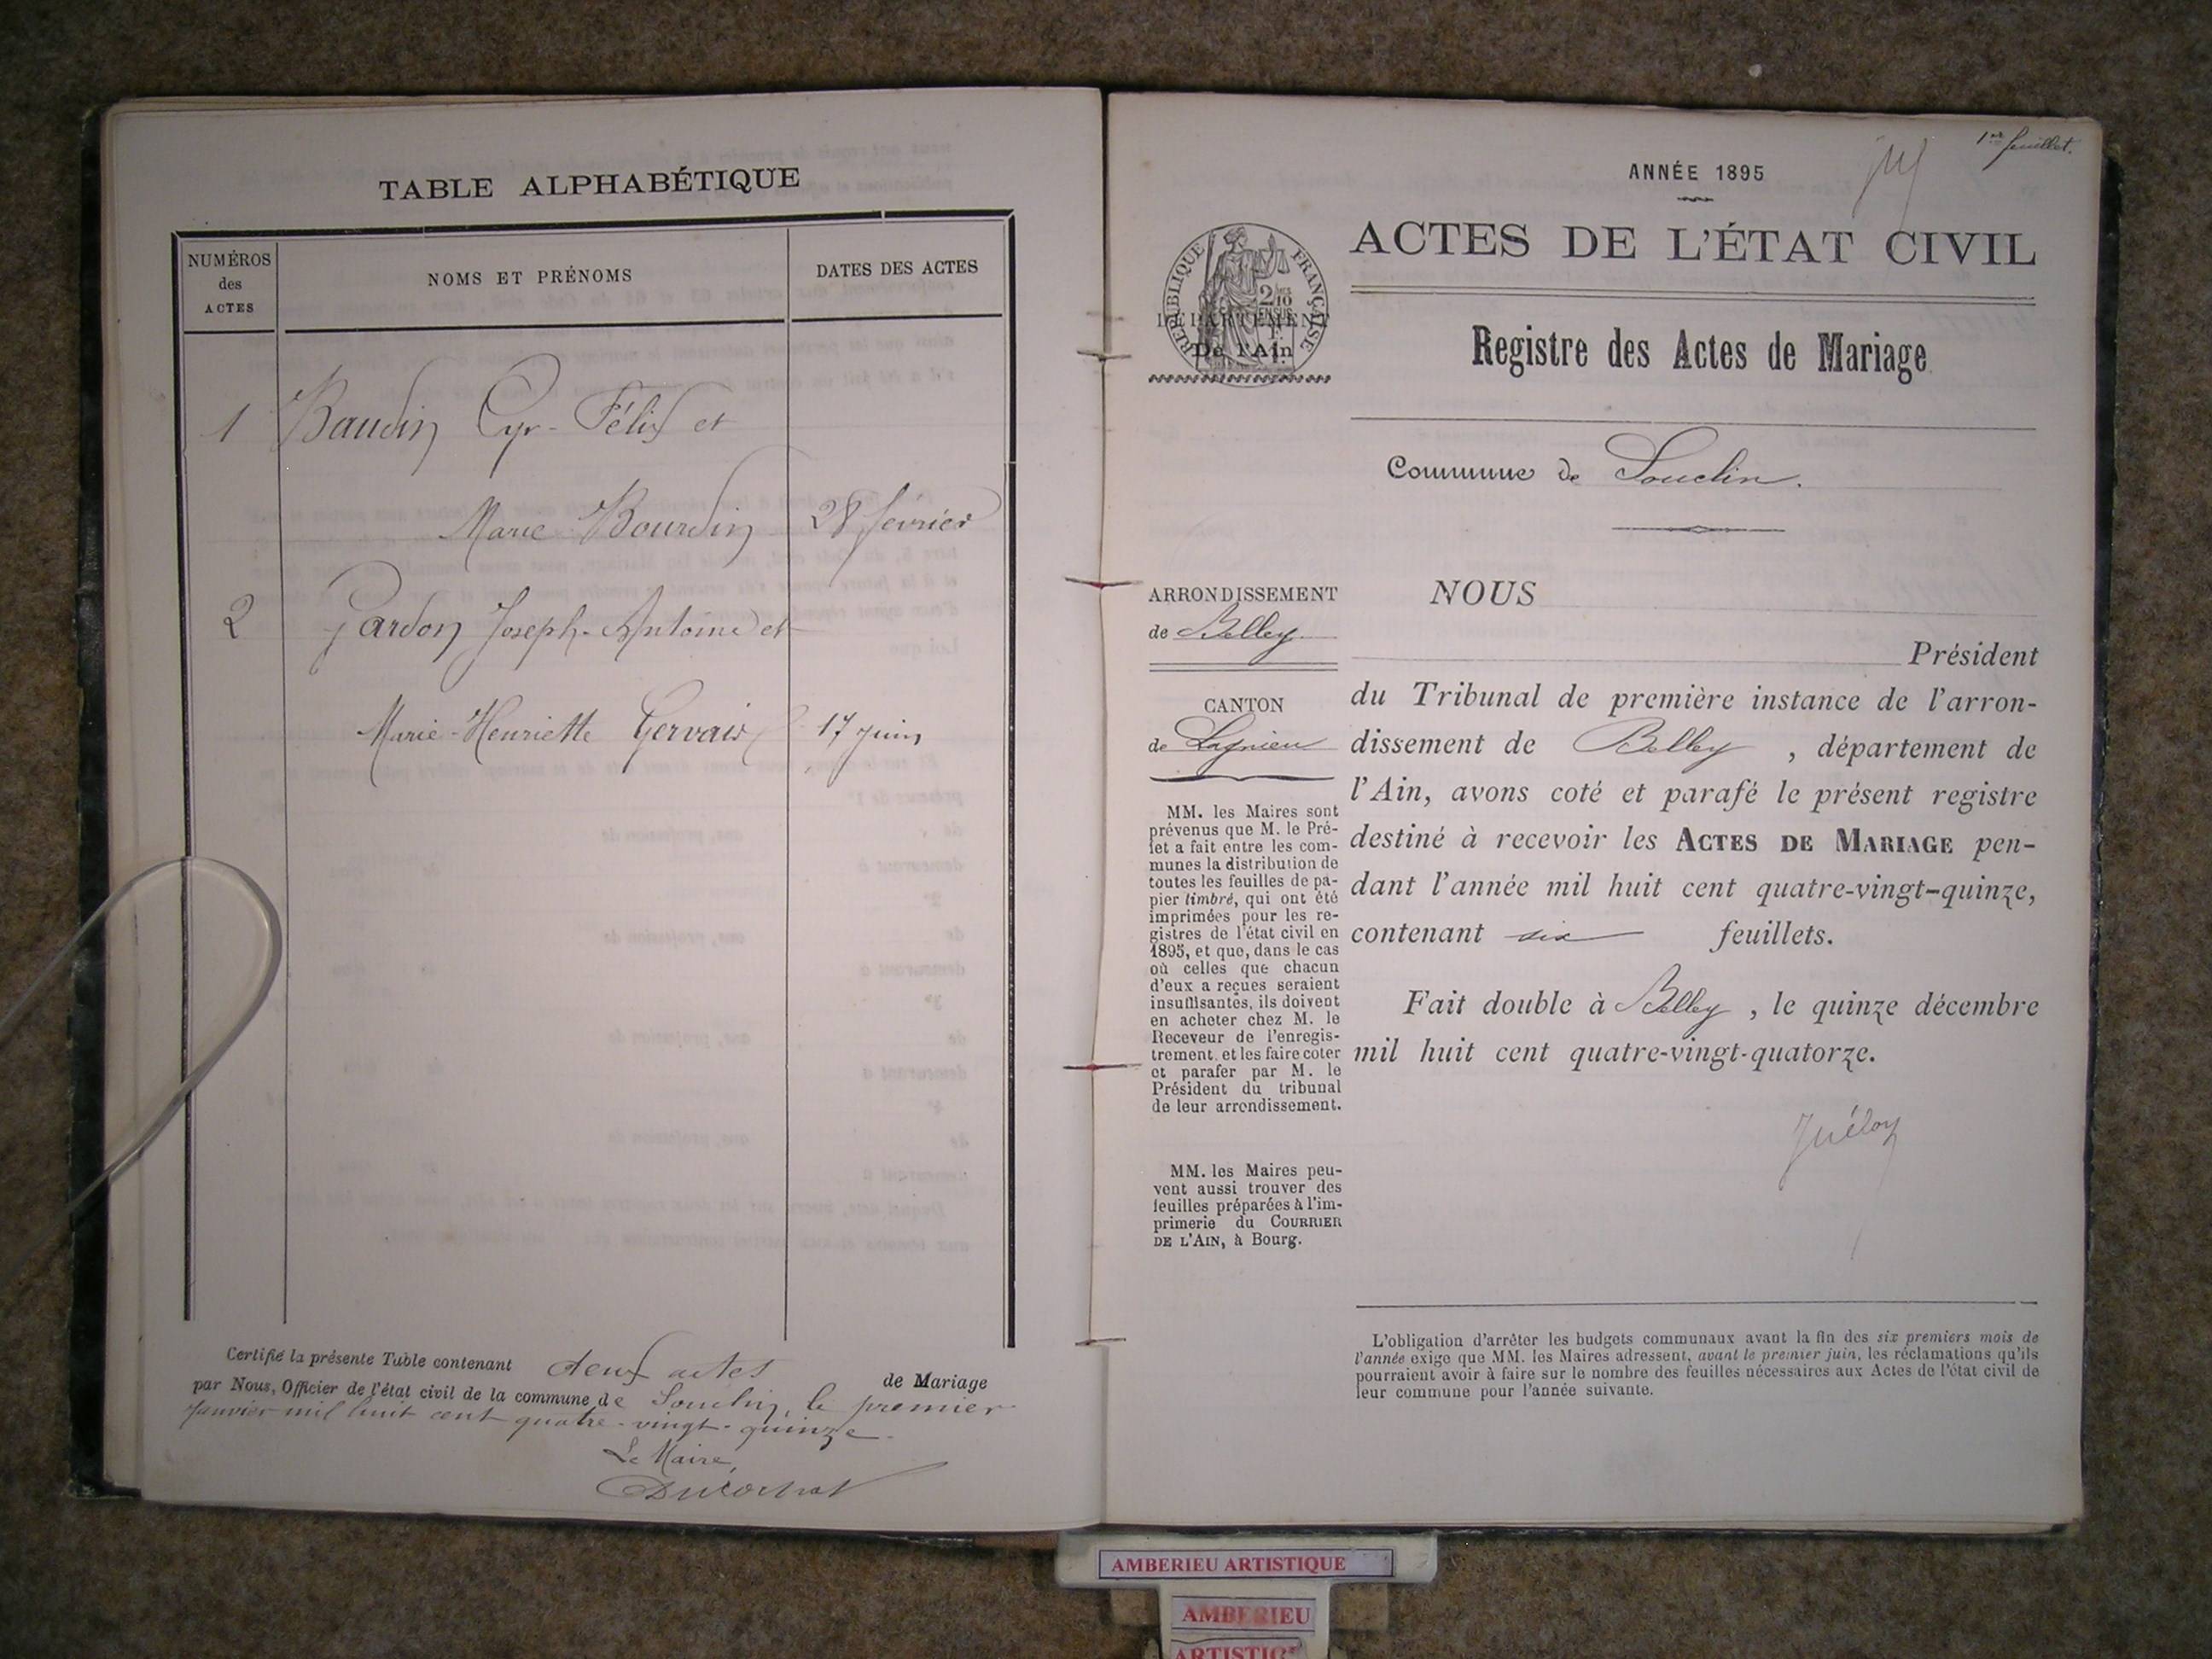 TABLE ALPHABÉTIQUE
NUMÉROS
des
ACTES
NOMS ET PRÉNOMS
DATES DES ACTES
1 Baudin Cyr-Félix et
Marie Bourdin 28 février
2 Gardon Joseph-Antoine et
Marie-Henriette Gervais 17 juin
Certifié la présente Table contenant deux actes de Mariage
par Nous, Officier de l'état civil de la commune de Souclin, le premier
Janvier mil huit cent quatre-vingt-quinze.
Le Maire,
Ducochat
1er feuillet.
ANNÉE 1895
ACTES DE L'ÉTAT CIVIL
RÉPUBLIQUE FRANÇAISE
DÉPARTEMENT
De l'Ain
Registre des Actes de Mariage
Commune de Souclin.
ARRONDISSEMENT
de Belley
CANTON
de Lagnieu
MM. les Maires sont
prévenus que M. le Pré-
fet a fait entre les com-
munes la distribution de
toutes les feuilles de pa-
pier timbré, qui ont été
imprimées pour les re-
gistres de l'état civil en
1895, et que, dans le cas
où celles que chacun
d'eux a reçues seraient
insuffisantes, ils doivent
en acheter chez M. le
Receveur de l'enregis-
trement, et les faire coter
et parafer par M. le
Président du tribunal
de leur arrondissement.
MM. les Maires peu-
vent aussi trouver des
feuilles préparées à l'im-
primerie du COURRIER
DE L'AIN, à Bourg.
NOUS
Président
du Tribunal de première instance de l'arron-
dissement de Belley, département de
l'Ain, avons coté et parafé le présent registre
destiné à recevoir les ACTES DE MARIAGE pen-
dant l'année mil huit cent quatre-vingt-quinze,
contenant six feuillets.
Fait double à Belley, le quinze décembre
mil huit cent quatre-vingt-quatorze.
L'obligation d'arrêter les budgets communaux avant la fin des six premiers mois de
l'année exige que MM. les Maires adressent, avant le premier juin, les réclamations qu'ils
pourraient avoir à faire sur le nombre des feuilles nécessaires aux Actes de l'état civil de
leur commune pour l'année suivante.
AMBERIEU ARTISTIQUE
AMBERIEU
ARTISTIQUE